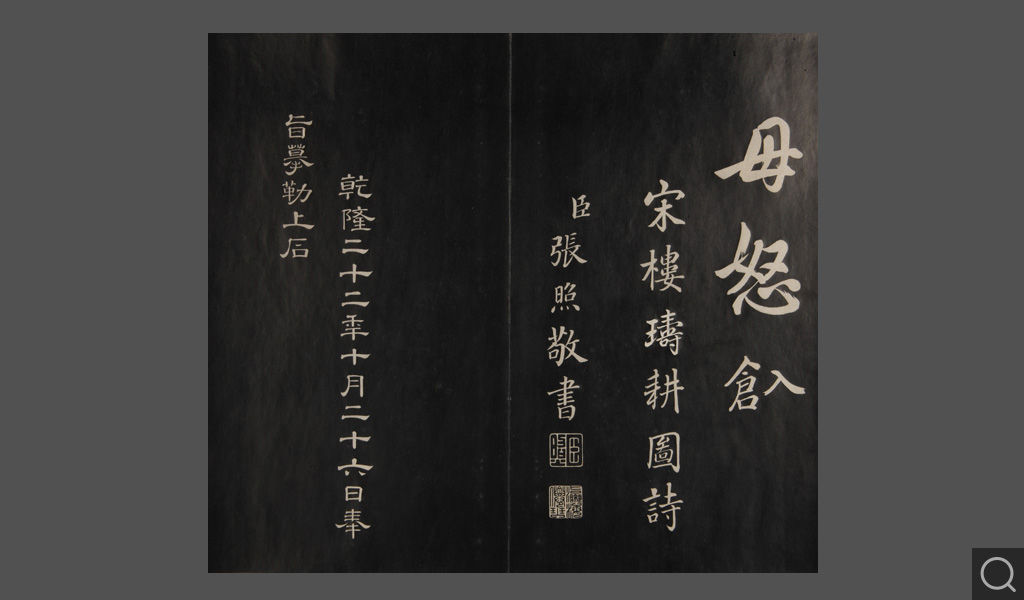 毋怒入倉
宋樓璹耕圖詩
臣張照敬書
乾隆二十二年十月二十六日奉
旨摹勒上石